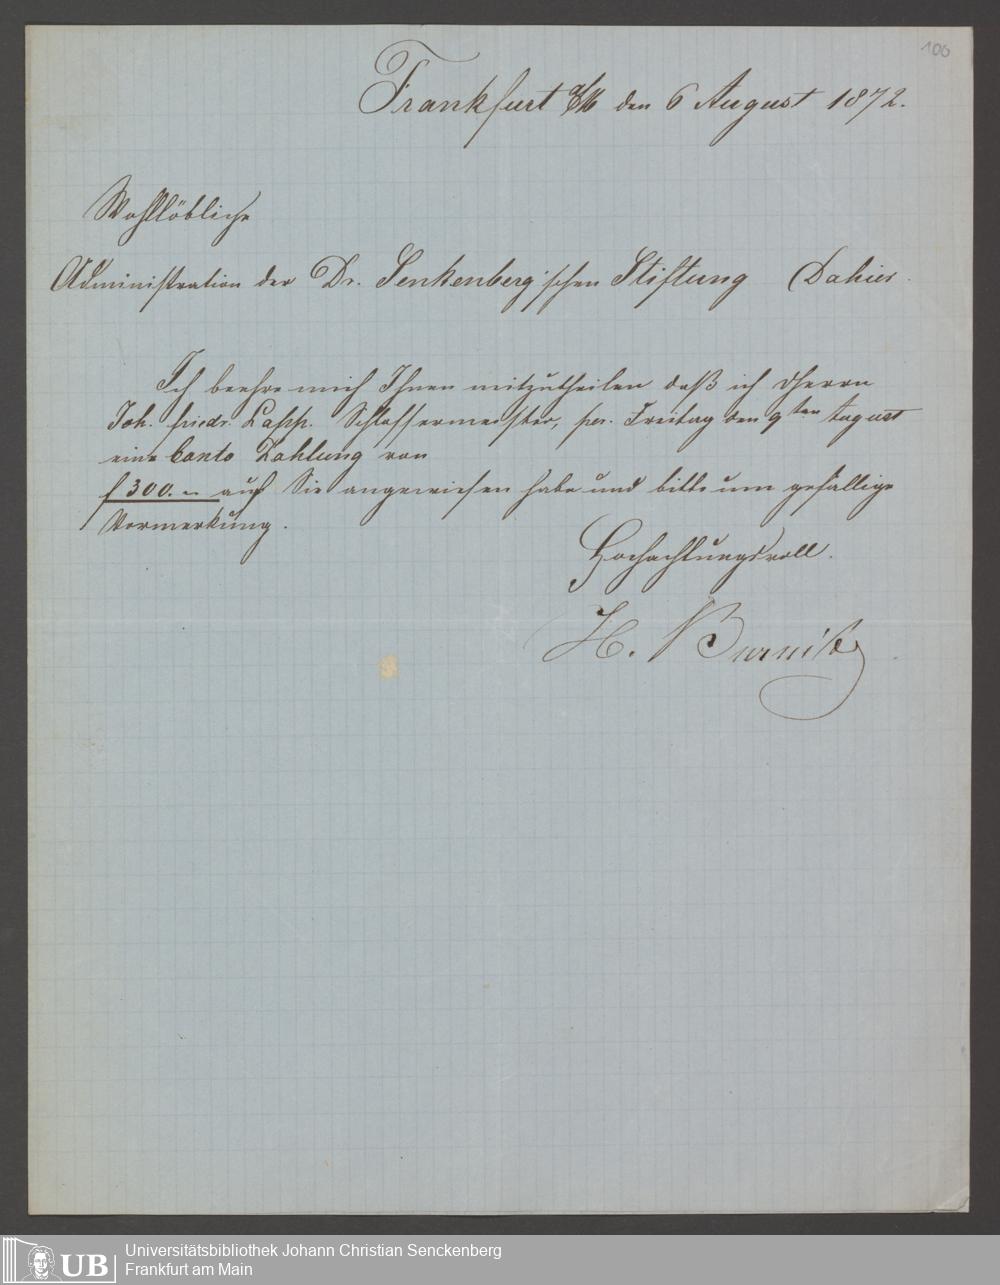 100
Frankfurt a/M den 6 August 1872.
Wohllöbliche
Administration der Dr. Senkenberg'schen Stiftung Dahier.
Ich beehre mich Ihnen mitzutheilen daß ich Herrn
Joh. Friedr. Lapp. Schlossermeister, per. Freitag den 9ten August
eine Conto Zahlung von
f 300. – auf Sie angewiesen habe und bitte um gefällige
Vormerkung.
Hochachtungsvoll.
H. Burnitz
UB
Universitätsbibliothek Johann Christian Senckenberg
Frankfurt am Main